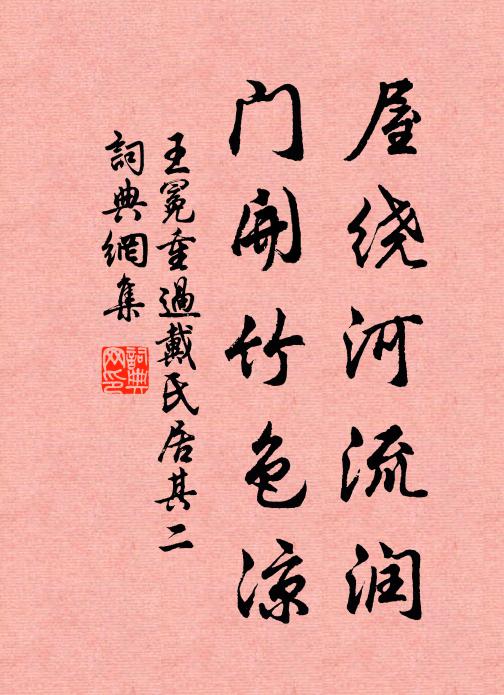 屋绕河流润
门开竹色凉
王冕重過戴氏居其二
詞典網集
詞典网印